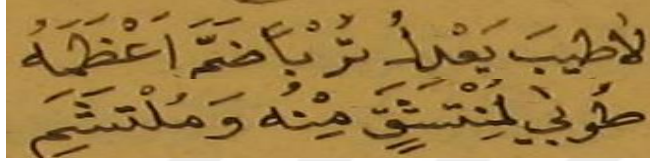 لَاطِيبَ يَعْدِلُ تُرْبًا ضَمَّ اَعْظُمَهُ
طُوبٰي لِمُنْتَشِقٍ مِنْهُ وَمُلْتَثِمِ